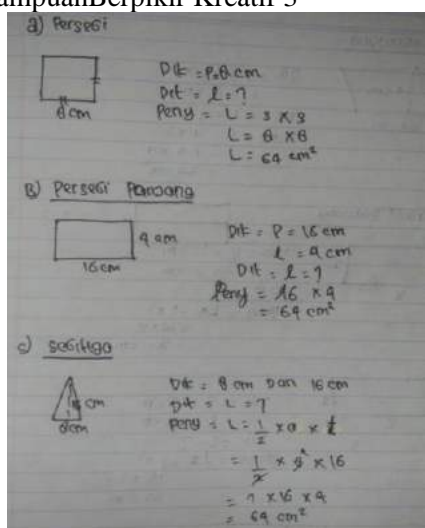 ampuanBerpikir Kreatif 3
a) Persegi
8 cm
Dik = P = 8 cm
Dit = L = ?
Peny = L = s x s
L = 8 x 8
L = 64 cm²
B) Persegi Panjang
4 cm
16 cm
Dik = P = 16 cm
l = 4 cm
Dit = L = ?
Peny = 16 x 4
= 64 cm²
c) Segitiga
cm
8 cm
Dik = 8 cm Dan 16 cm
Dit = L = ?
Peny = L = 1/2 x a x t
= 1/2 x 8 x 16
= 1 x 16 x 4
= 64 cm²